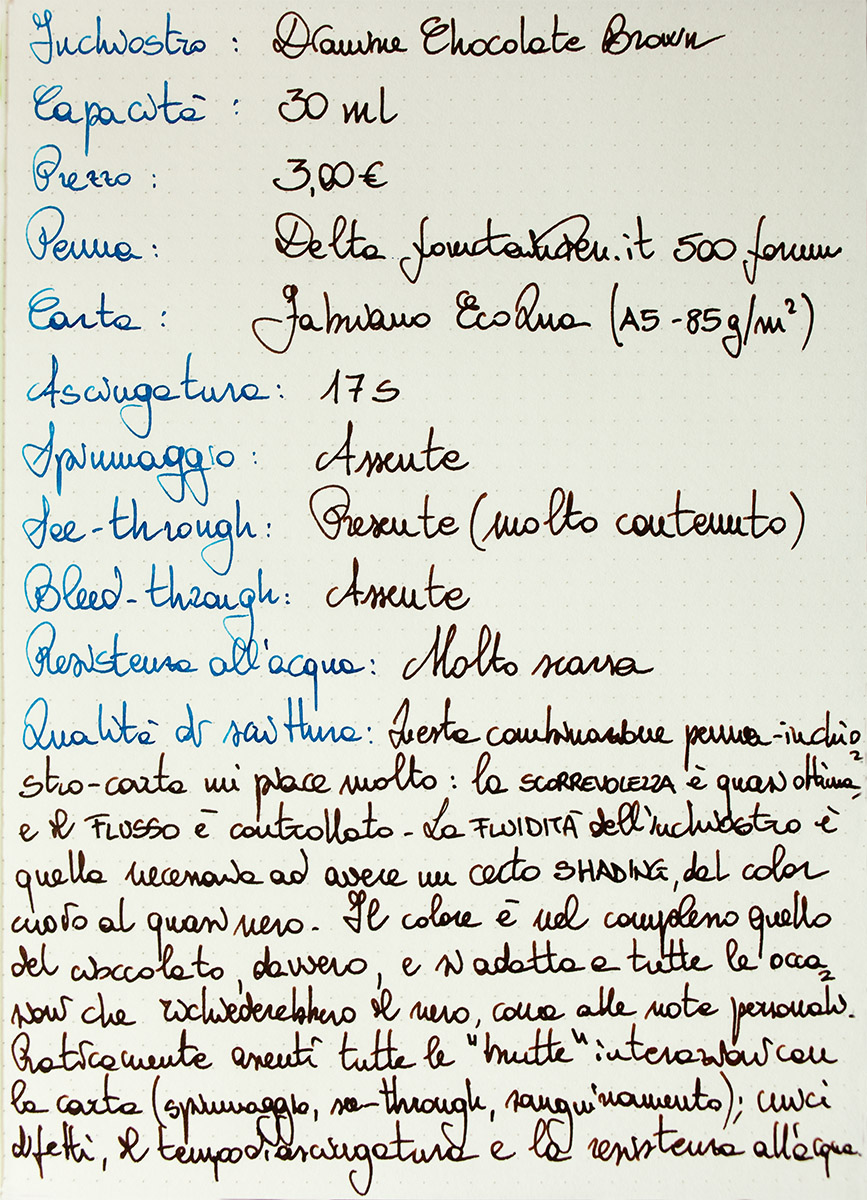 Inchiostro : Diamine Chocolate Brown
Capacità : 30 ml
Prezzo : 3,00€
Penna : Delta fountainpen.it 500 forum
Carta : Fabriano EcoQua (A5 - 85g/m²)
Asciugatura : 17s
Spiumaggio : Assente
See-through : Presente (molto contenuto)
Bleed-through : Assente
Resistenza all'acqua : Molto scarsa
Qualità di scrittura : Questa combinazione penna-inchio
stro-carta mi piace molto : la SCORREVOLEZZA è quasi ottima,
e il FLUSSO è controllato - La FLUIDITÀ dell'inchiostro è
quella necessaria ad avere un certo SHADING, dal color
cuoio al quasi nero. Il colore è nel complesso quello
del cioccolato, davvero, e si adatta a tutte le occa
sioni che richiederebbero il nero, come alle note personali.
Praticamente assenti tutte le "brutte" interazioni con
la carta (spiumaggio, see-through, sanguinamento); unici
difetti, il tempo di asciugatura e la resistenza all'acqua.